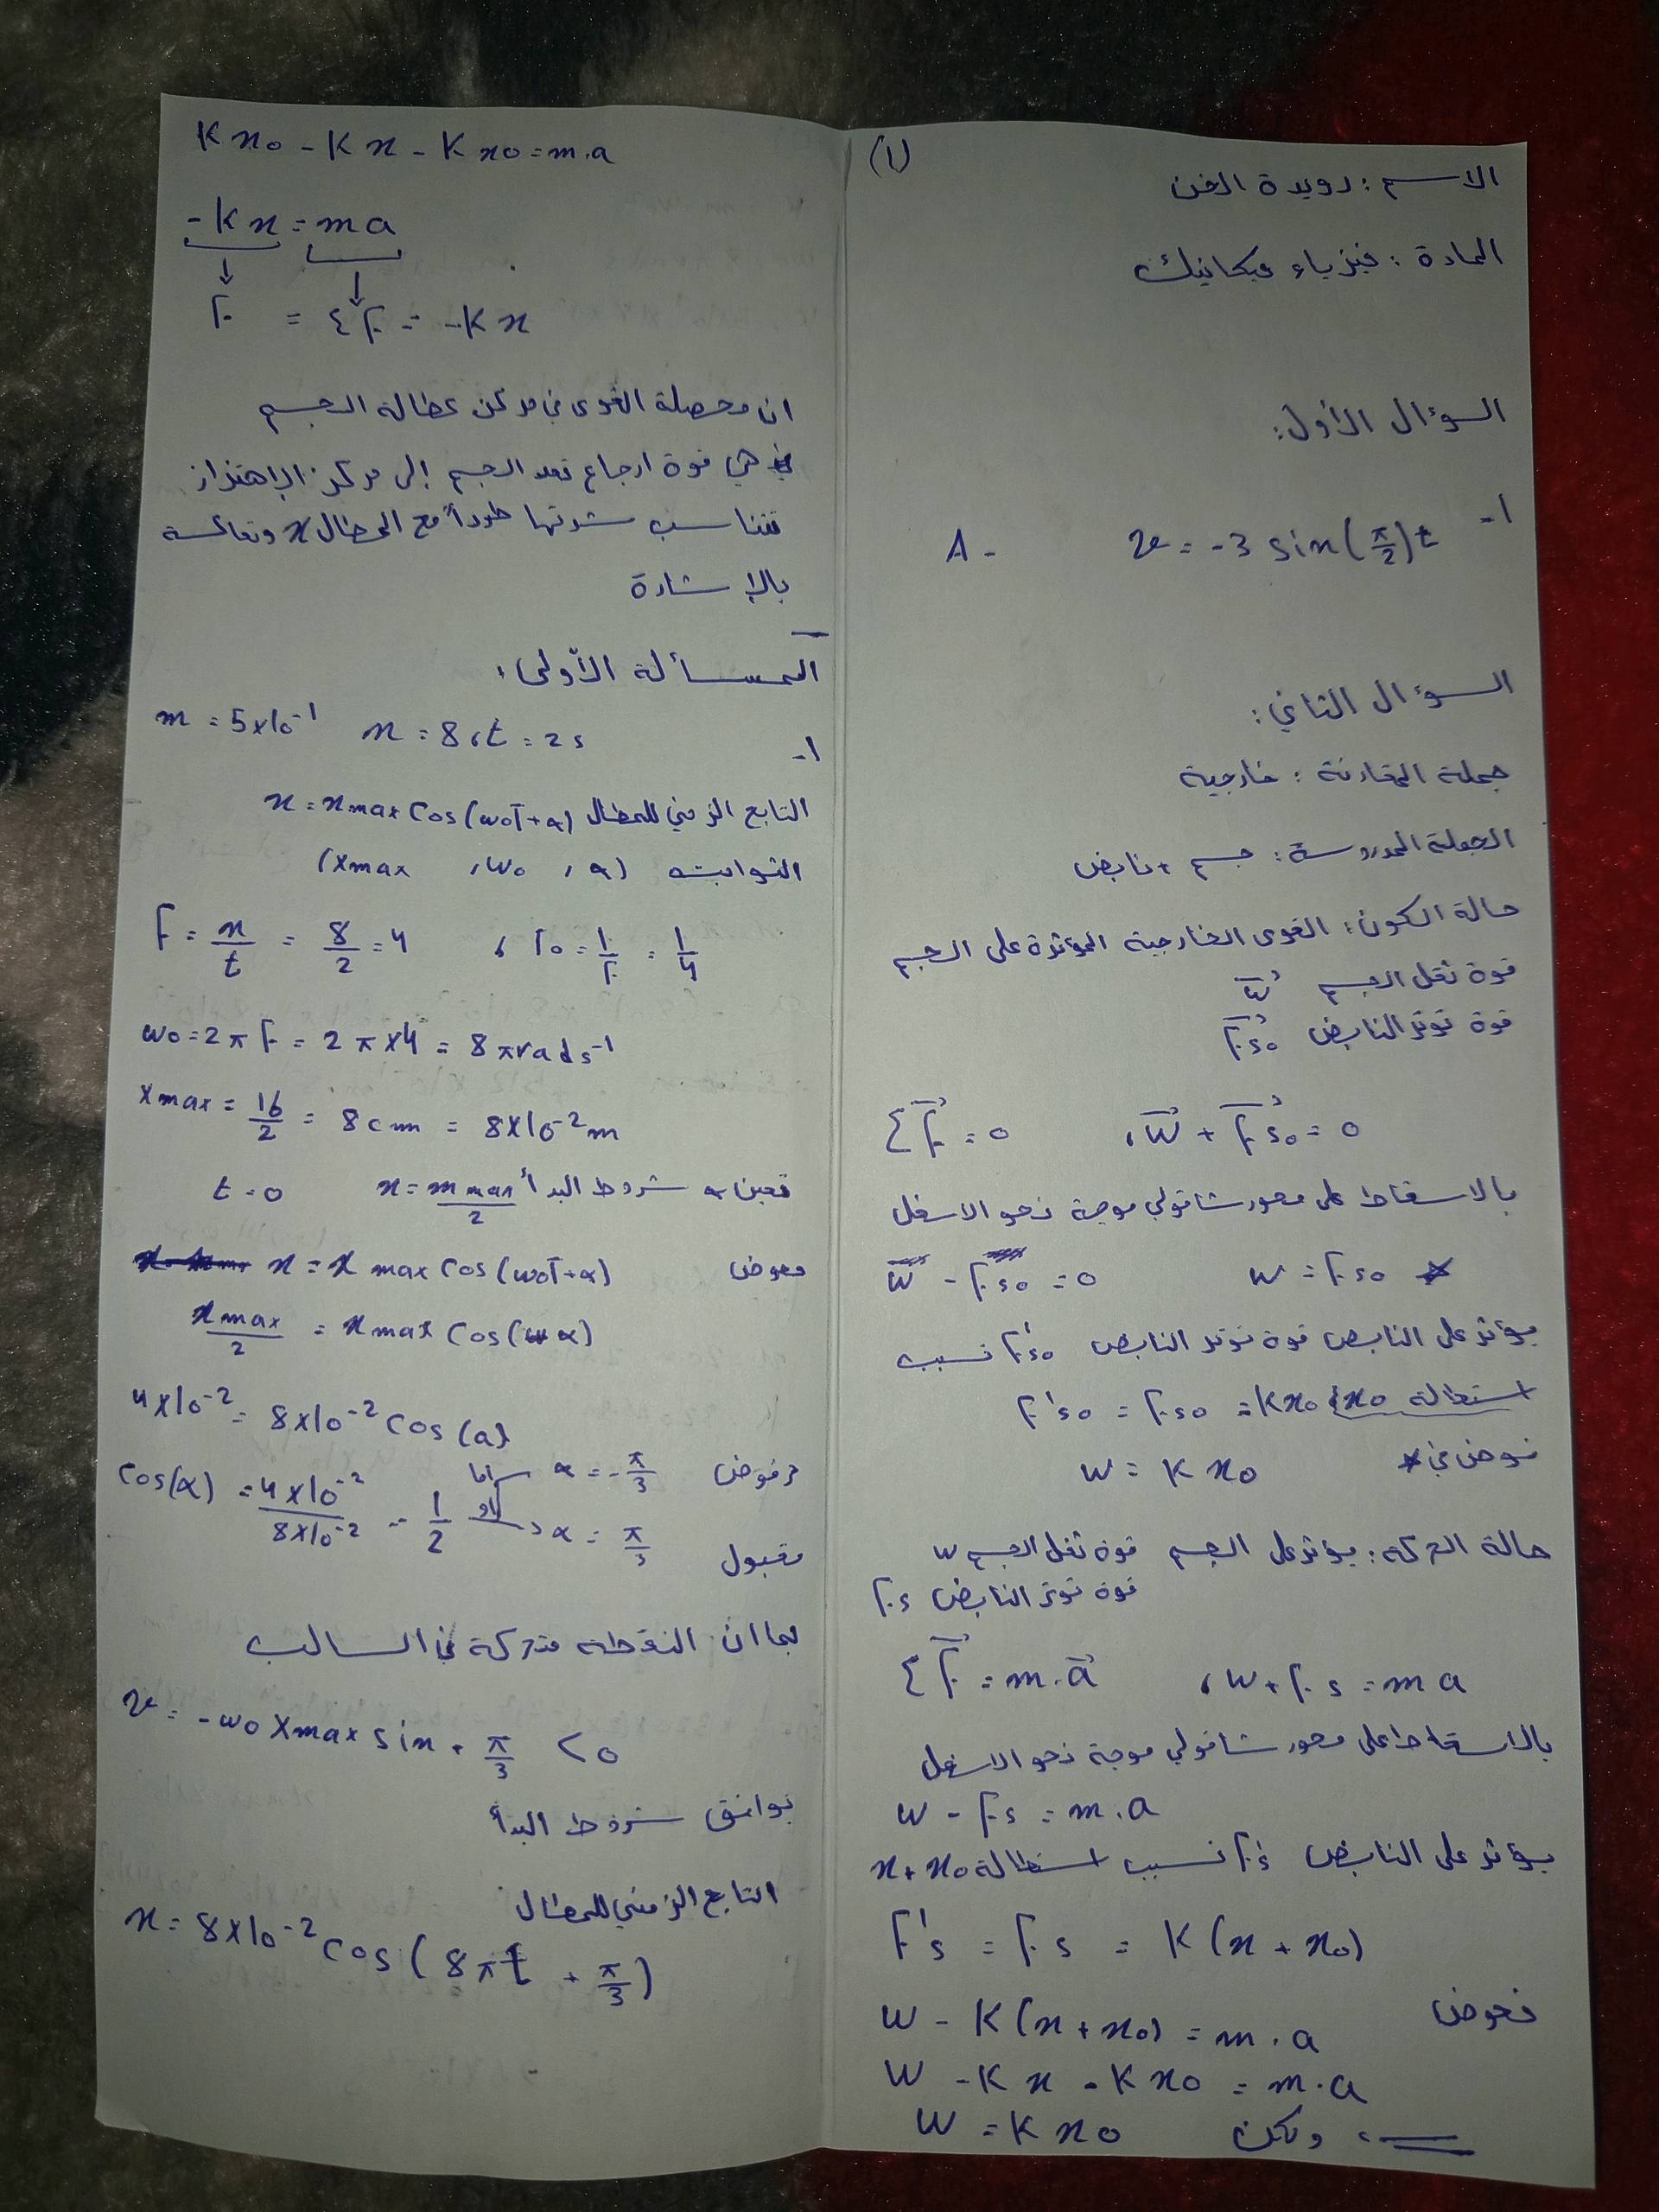 (1)
الاسم: رويدة الخن
المادة: فيزياء ميكانيك
السؤال الأول:
1- v = -3 sin(π/2)t A-
السؤال الثاني:
جملة المقارنة: خارجية
الجملة المدروسة: جسم + نابض
حالة السكون: القوى الخارجية المؤثرة على الجسم
قوة ثقل الجسم W
قوة توتر النابض Fs0
ΣF = 0 ، W + Fs0 = 0
بالاسقاط على محور شاقولي موجة نحو الاسفل
W - Fs0 = 0 W = Fs0 *
يؤثر على النابض قوة توتر النابض F's0 تسبب
استطالة x0 F's0 = Fs0 = Kx0
نوض في * W = K x0
حالة الحركة: يؤثر على الجسم قوة ثقل الجسم W
قوة توتر النابض Fs
ΣF = m.a ، W + Fs = ma
بالاسقاط على محور شاقولي موجة نحو الاسفل
W - Fs = m.a
يؤثر على النابض F's تسبب استطالة x + x0
F's = Fs = K(x + x0)
نعوض
W - K(x + x0) = m.a
W - Kx - Kx0 = m.a
ولكن W = Kx0
Kx0 - Kx - Kx0 = m.a
-Kx = ma
F = ΣF = -Kx
ان محصلة القوى في مركز عطالة الجسم
هي قوة ارجاع تعد الجسم إلى مركز الإهتزاز
تتناسب شدتها طرداً مع المطال x وتعاكسه
بالإشارة
المسألة الأولى:
m = 5x10⁻¹ n = 8 ، t = 2s
1-
التابع الزمني للمطال x = xmax Cos(ω0T + α)
الثوابت (xmax ، ω0 ، α)
F = n/t = 8/2 = 4 ، T0 = 1/F = 1/4
ω0 = 2πF = 2π x 4 = 8π rad s⁻¹
xmax = 16/2 = 8cm = 8x10⁻² m
نعين α شروط البدأ x = xmax/2 t = 0
نعوض x = xmax Cos(ω0T + α)
xmax/2 = xmax Cos(α)
4x10⁻² = 8x10⁻² Cos(α)
Cos(α) = 4x10⁻²/8x10⁻² = 1/2 اما α = -π/3 مرفوض
او α = π/3 مقبول
بما ان النقطة متحركة في السالب
v = -ω0 Xmax sin . π/3 < 0
توافق شروط البدأ
التابع الزمني للمطال
x = 8x10⁻² cos(8πt + π/3)